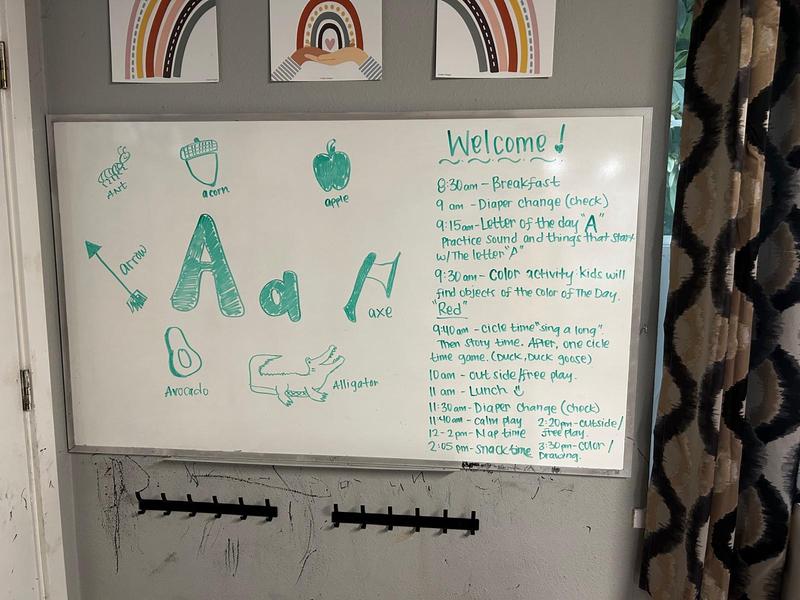 Ant
acorn
apple
arrow
A a
axe
Avocado
Alligator
Welcome!
8:30am - Breakfast
9 am - Diaper change (check)
9:15am - Letter of the day "A"
Practice sound and things that start
w/The letter "A"
9:30am - Color activity: kids will
find objects of the color of The Day.
"Red"
9:40am - Cicle time "sing a long".
Then story time. After, one cicle
time game. (Duck, Duck goose)
10am - out side/free play.
11 am - Lunch
11:30am - Diaper Change (check)
11:40am - calm play
12 - 2pm - Nap time
2:05 pm - snack time
2:20pm - outside/
free play.
3:30pm - color /
Drawing.